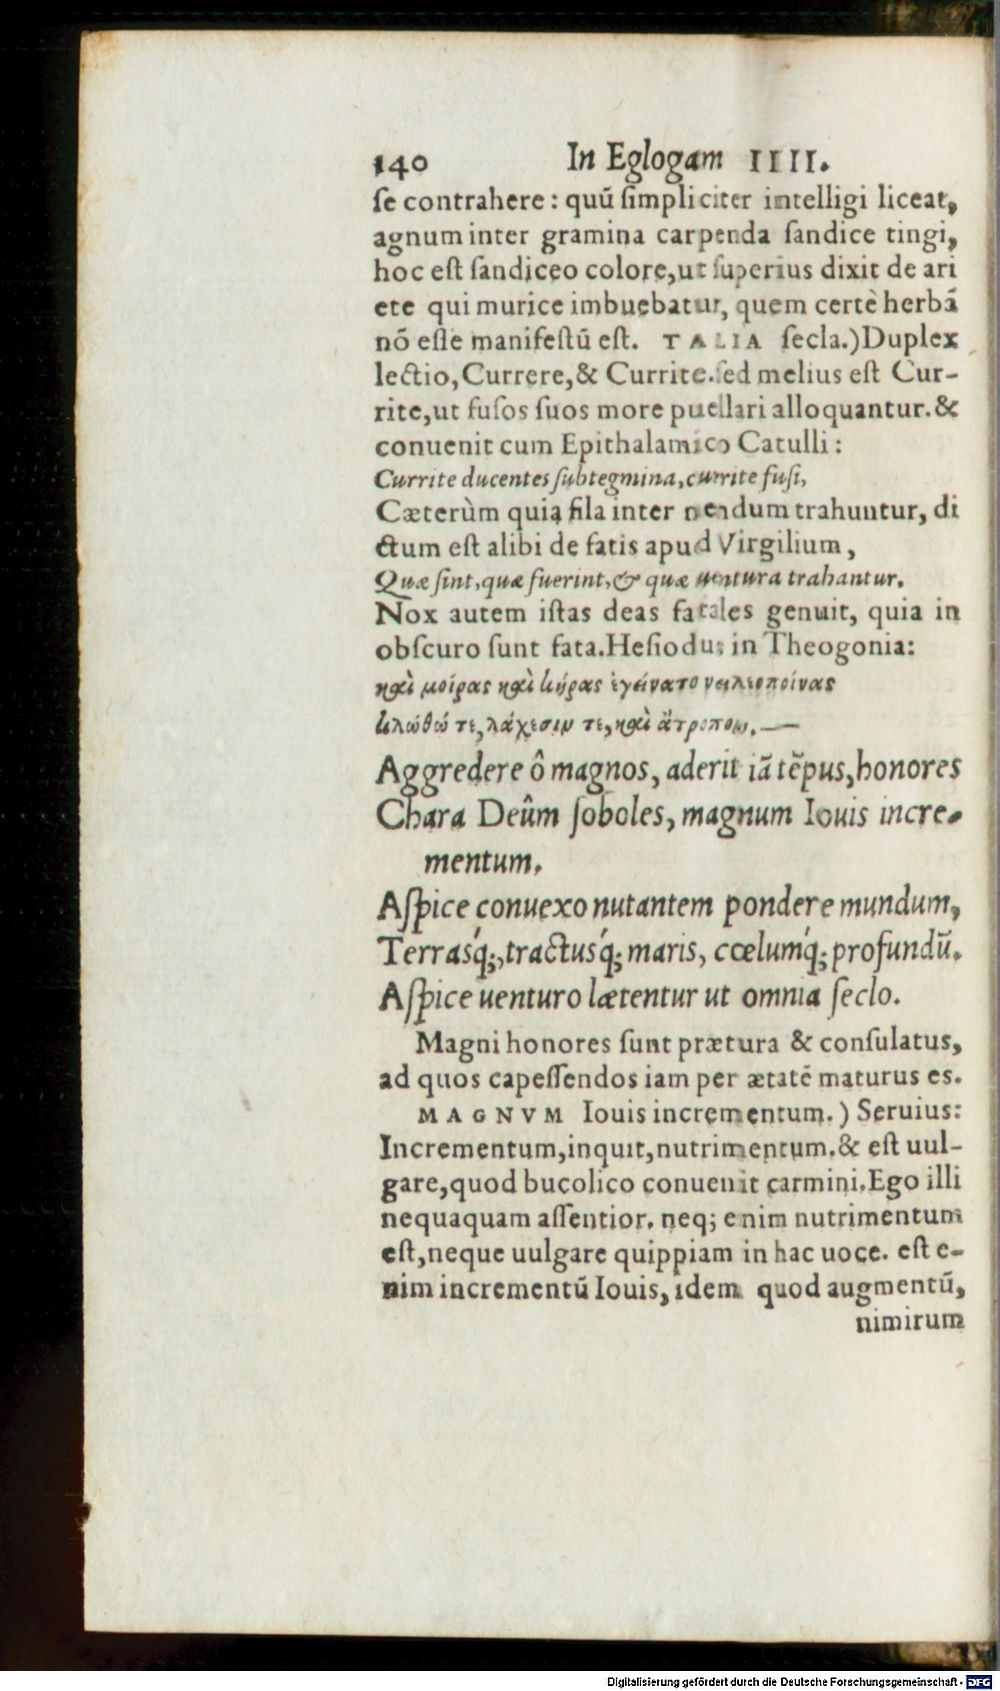 140 In Eglogam IIII.
se contrahere: quū simpliciter intelligi liceat,
agnum inter gramina carpenda sandice tingi,
hoc est sandiceo colore, ut superius dixit de ari
ete qui murice imbuebatur, quem certè herbā
nō esse manifestū est. TALIA secla.) Duplex
lectio, Currere, & Currite. sed melius est Cur-
rite, ut fusos suos more puellari alloquantur. &
conuenit cum Epithalamico Catulli:
Currite ducentes subtegmina, currite fusi,
Cæterùm quia fila inter nendum trahuntur, di
ctum est alibi de fatis apud Virgilium,
Quæ sint, quæ fuerint, & quæ uentura trahantur.
Nox autem istas deas fatales genuit, quia in
obscuro sunt fata. Hesiodus in Theogonia:
καὶ μοίρας καὶ κῆρας ἐγείνατο νηλεοποίνας
κλωθώ τε, λάχεσίν τε, καὶ ἄτροπον, —
Aggredere ô magnos, aderit iā tēpus, honores
Chara Deûm soboles, magnum Iouis incre-
mentum.
Aspice conuexo nutantem pondere mundum,
Terrasq́;, tractusq́; maris, cœlumq́; profundū.
Aspice uenturo lætentur ut omnia seclo.
Magni honores sunt prætura & consulatus,
ad quos capessendos iam per ætatē maturus es.
MAGNVM Iouis incrementum.) Seruius:
Incrementum, inquit, nutrimentum. & est uul-
gare, quod bucolico conuenit carmini. Ego illi
nequaquam assentior. neq; enim nutrimentum
est, neque uulgare quippiam in hac uoce. est e-
nim incrementū Iouis, idem quod augmentū,
nimirum
Digitalisierung gefördert durch die Deutsche Forschungsgemeinschaft - DFG